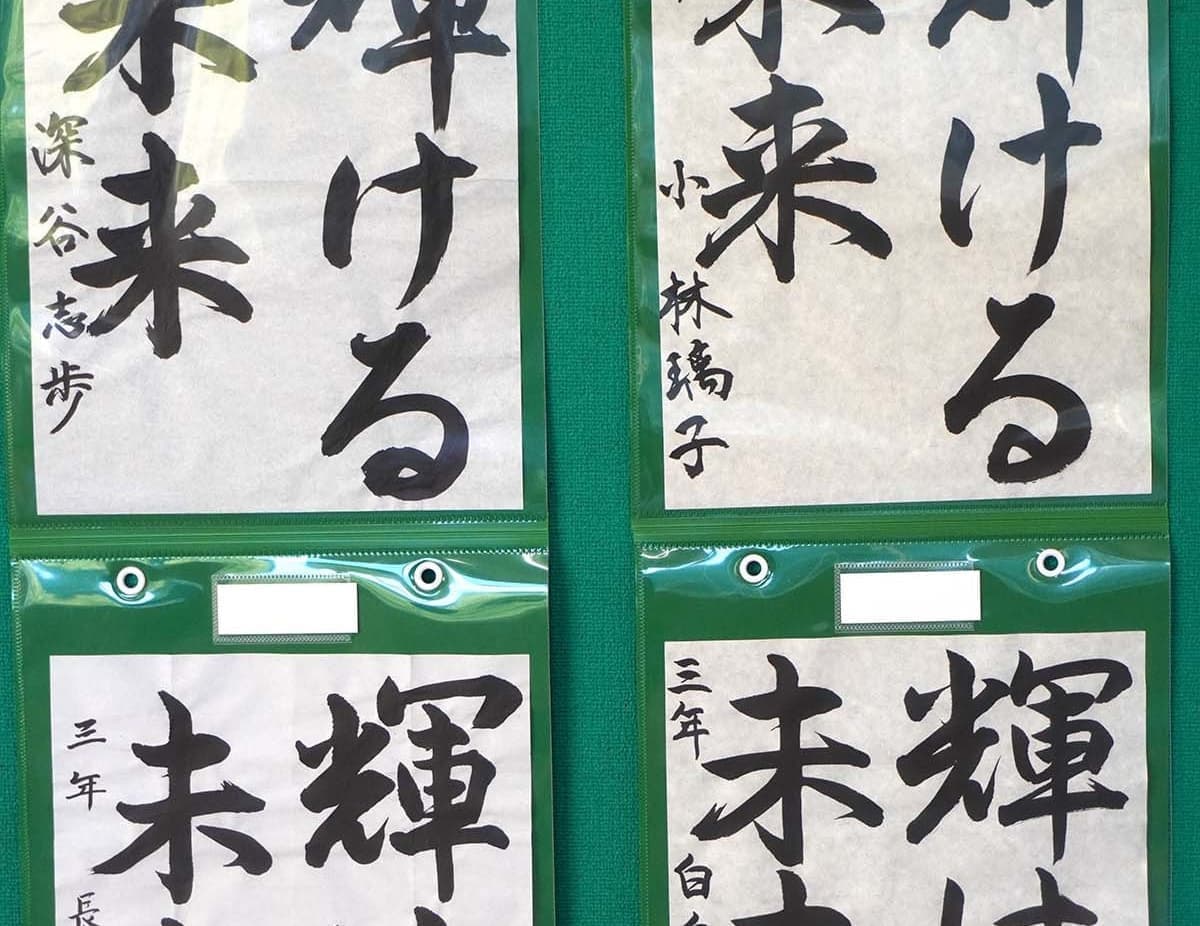 輝ける
未来
深谷志歩
ける
未来
小林璃子
輝
未
三年 長
輝け
未
三年 白